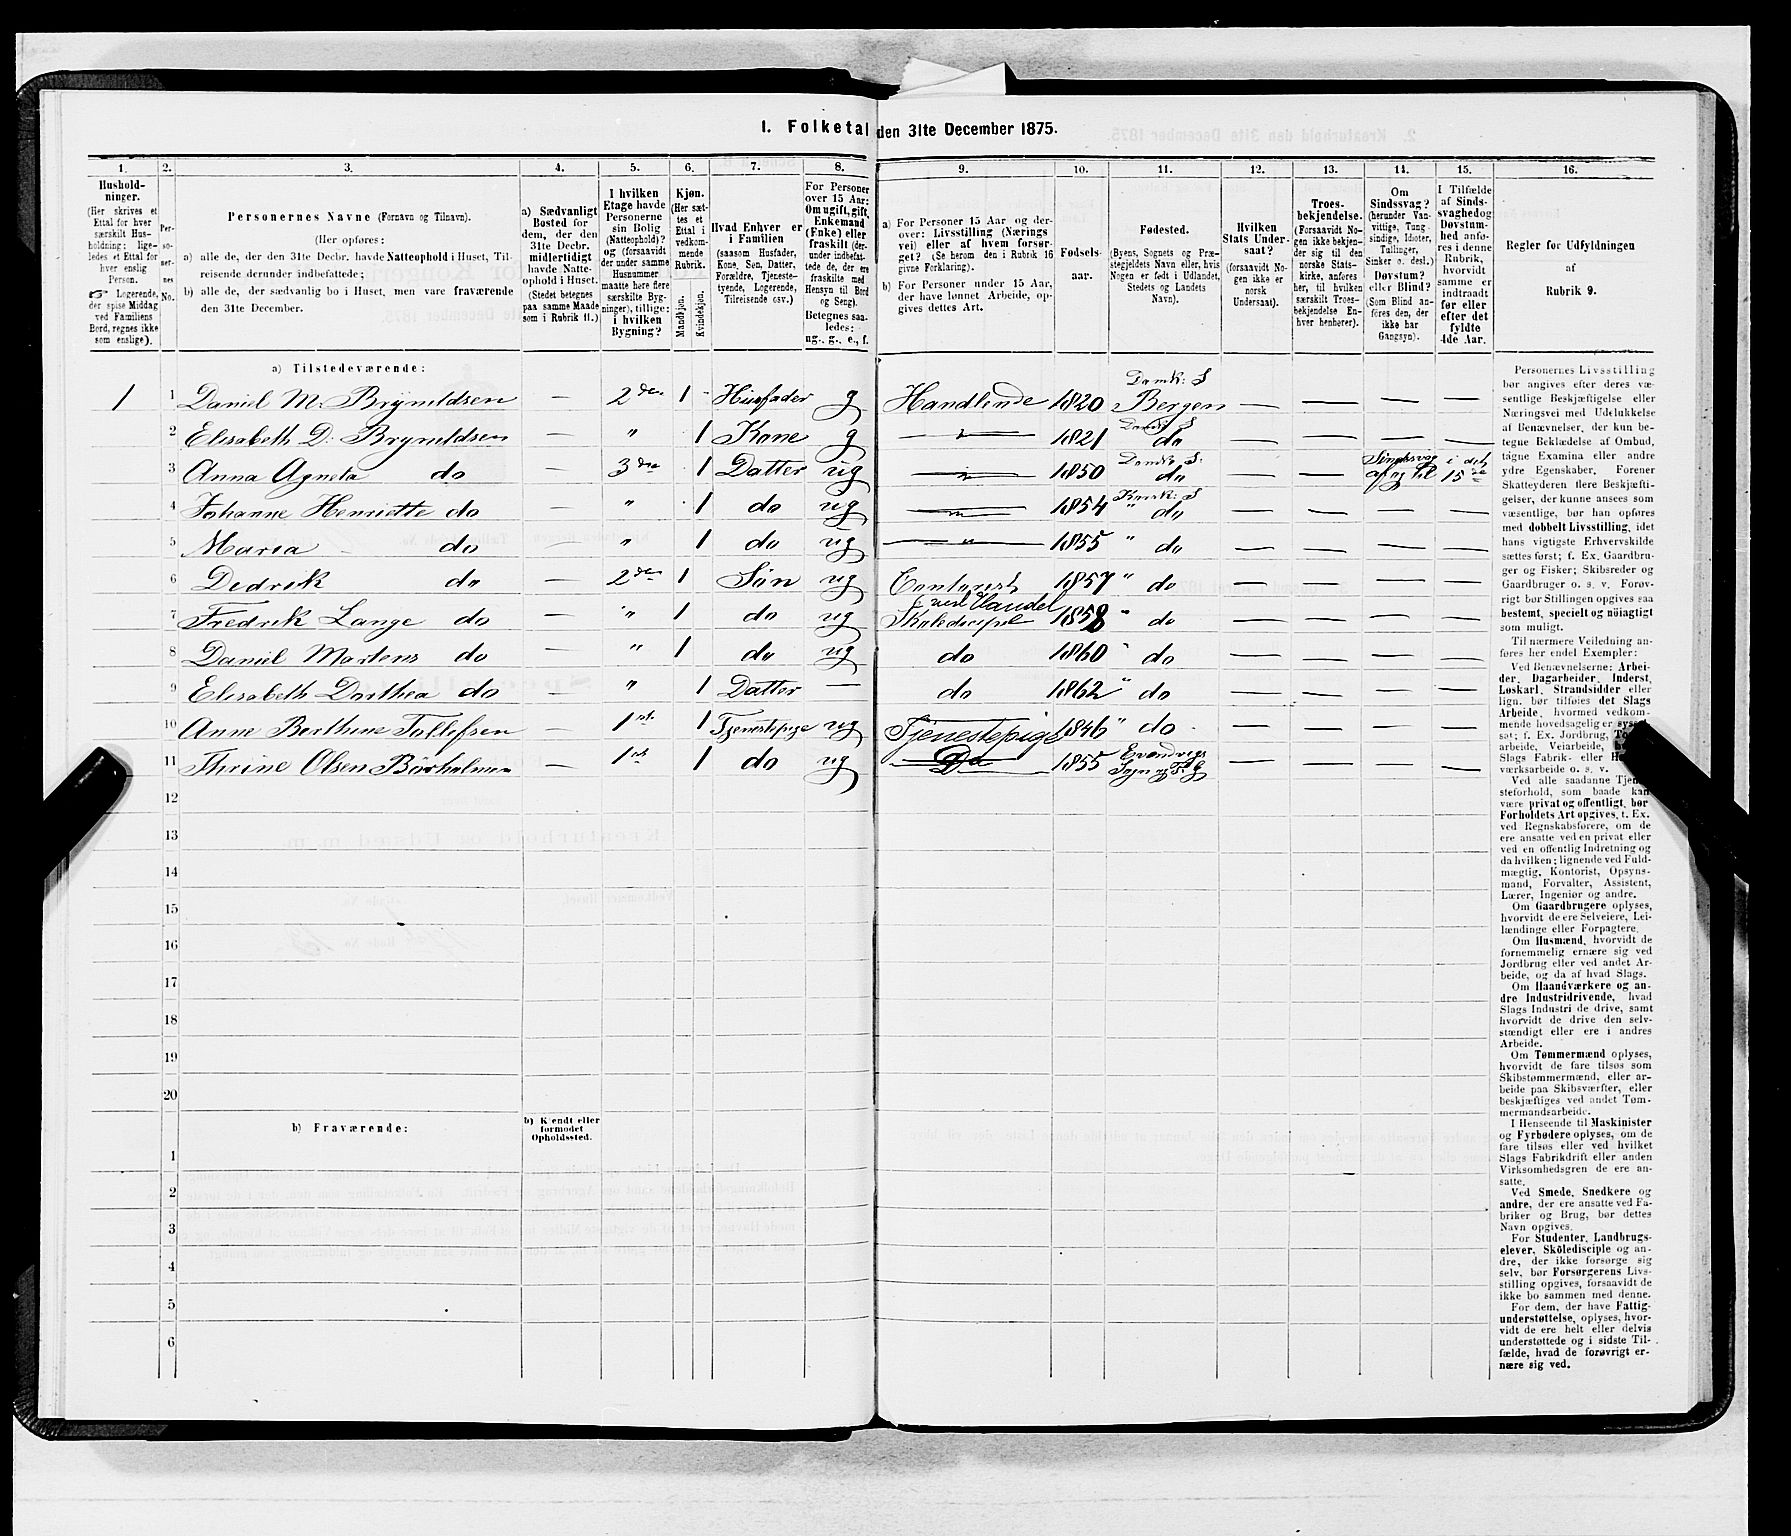 1. Folketal den 31te December 1875.
1. 2. 3. 4. 5. 6. 7. 8. 9. 10. 11. 12. 13. 14. 15. 16.
Hushold-
ninger.
(Her skrives et
Ettal for hver
særskilt Hus-
holdning; lige-
ledes et Ettal for
hver enslig
Person.
Logerende,
der spise Middag
ved Familiens
Bord, regnes ikke
som enslige).
Per-
so-
ner-
nes
No.
Personernes Navne (Fornavn og Tilnavn).
(Her opføres:
a) alle de, der den 31te Decbr. havde Natteophold i Huset, Til-
reisende derunder indbefattede;
b) alle de, der sædvanlig bo i Huset, men vare fraværende
den 31te December.
a) Sædvanligt
Bosted for
dem, der den
31te Decbr.
midlertidigt
havde Natte-
ophold i Huset.
(Stedet betegnes
paa samme Maade
som i Rubrik 11.)
I hvilken
Etage havde
Personerne
sin Bolig
(Natteophold)?
og (forsaavidt
der under samme
Husnummer
maatte høre flere
særskilte Byg-
ninger), tillige:
i hvilken
Bygning?
Kjøn.
(Her sæt-
tes et
Ettal i
vedkom-
mende
Rubrik.
Mandkjøn.
Kvindekjøn.
Hvad Enhver er
i Familien
(saasom Husfader,
Kone, Søn, Datter,
Forældre, Tjeneste-
tyende, Logerende,
Tilreisende osv.)
For Personer
over 15 Aar:
Om ugift, gift,
Enkemand
(Enke) eller
fraskilt (der-
under indbefat-
tede de, der ere
fraskilte med
Hensyn til Bord
og Seng).
Betegnes saa-
ledes:
ug., g., e., f.
a) For Personer 15 Aar og der-
over: Livsstilling (Nærings
vei) eller af hvem forsør-
get? (Se herom den i Rubrik 16
givne Forklaring).
b) For Personer under 15 Aar,
der have lønnet Arbeide, op-
gives dettes Art.
Fødsels-
aar.
Fødested.
(Byens, Sognets og Præ-
stegjeldets Navn eller, hvis
Nogen er født i Udlandet,
Stedets og Landets
Navn).
Hvilken
Stats Under-
saat?
(forsaavidt No-
gen ikke er
norsk
Undersaat).
Troes-
bekjendelse.
(Forsaavidt No-
gen ikke bekjen-
der sig til den
norske Stats-
kirke, anføres
her, til hvilken
særskilt Troes-
bekjendelse En-
hver henhører).
Om
Sindssvag?
(herunder Van-
vittige, Tung
sindige, Idioter,
Tullinger,
Sinker o. desl.)
Døvstum?
eller Blind?
(Som Blind an-
føres den, der
ikke har
Gangsyn).
I Tilfælde
af Sinds-
svaghed og
Døvstum-
hed anfø-
res i denne
Rubrik,
hvorvidt
samme er
indtraadt
før eller
efter det
fyldte
4de Aar.
Regler for Udfyldningen
af
Rubrik 9.
a) Tilstedeværende:
1 1 Daniel M. Bryneldsen — 2den 1 - Husfader g Handlende 1820 Domk: S Bergen — — — —
2 Elisabeth D. Bryneldsen — " 1 Kone g — " — 1821 Domk: S do — — — —
3 Anna Agneta do — 3die 1 Datter ug — " — 1850 Domk: S. do — — Sindssvag i det af og til 15de
4 Johanne Henriette do — " 1 do ug — " — 1854 Korsk: S " do — — — —
5 Maria do — " 1 do ug — " — 1855 " do — — — —
6 Dedrik do — 2den 1 Søn ug Contorist ved Handel 1857 " do — — — —
7 Fredrik Lange do — " 1 do ug Skoledicipel 1858 " do — — — —
8 Daniel Martens do — " 1 do ug do 1860 " do — — — —
9 Elisabeth Dorthea do — " 1 Datter — do 1862 " do — — — —
10 Anne Berthine Tollefsen — 1st. 1 Tjenestepige ug Tjenestepige 1846 " do — — — —
11 Thrine Olsen Börholmen — 1st 1 do ug Do 1855 Evandvigs Sogn og P. G — — — —
12
13
14
15
16
17
18
19
20
b) Fraværende:
b) Kjendt eller
formodet
Opholdssted.
1
2
3
4
5
6
Personernes Livsstilling
bør angives efter deres væ-
sentlige Beskjæftigelse eller
Næringsvei med Udelukkelse
af Benævnelser, der kun be-
tegne Beklædelse af Ombud,
tagne Examina eller andre
ydre Egenskaber. Forener
Skatteyderen flere Beskjæfti-
gelser, der kunne ansees som
væsentlige, bør han opføres
med dobbelt Livsstilling, idet
hans vigtigste Erhvervskilde
sættes først; f. Ex. Gaardbru-
ger og Fisker; Skibsreder og
Gaardbruger o. s. v. Forøv-
rigt bør Stillingen opgives saa
bestemt, specielt og nöiagtigt
som muligt.
Til nærmere Veiledning an-
føres her endel Exempler:
Ved Benævnelserne: Arbei-
der, Dagarbeider, Inderst,
Løskarl, Strandsidder eller
lign. bør tilføies det Slags
Arbeide, hvormed vedkom-
mende hovedsagelig er syssel-
sat; f. Ex. Jordbrug,
arbeide, Veiarbeide,
Slags Fabrik- eller
værksarbeide o. s. v.
Ved alle saadanne Tjene-
steforhold, som baade kan
være privat og offentligt, bør
Forholdets Art opgives, t. Ex.
ved Regnskabsførere, om de
ere ansatte ved en privat eller
ved en offentlig Indretning og
da hvilken; lignende ved Fuld-
mægtig, Kontorist, Opsyns-
mand, Forvalter, Assistent,
Lærer, Ingeniør og andre.
Om Gaardbrugere oplyses,
hvorvidt de ere Selveiere, Lei-
lændinge eller Forpagtere.
Om Husmænd, hvorvidt de
fornemmelig ernære sig ved
Jordbrug eller ved andet Ar-
beide, og da af hvad Slags.
Om Haandværkere og an-
dre Industridrivende, hvad
Slags Industri de drive, samt
hvorvidt de drive den selv-
stændigt eller ere i andres
Arbeide.
Om Tømmermænd oplyses,
hvorvidt de fare tilsøs som
Skibstømmermænd, eller ar-
beide paa Skibsværfter, eller
beskjæftiges ved andet Tøm-
mermandsarbeide.
I Henseende til Maskinister
og Fyrbødere oplyses, om de
fare tilsøs eller ved hvilket
Slags Fabrikdrift eller anden
Virksomhedsgren de ere an-
satte.
Ved Smede, Snedkere og
andre, der ere ansatte ved Fa-
briker og Brug, bør dettes
Navn opgives.
For Studenter, Landbrugs-
elever, Skoledisciple og an-
dre, der ikke forsørge sig
selv, bør Forsørgerens Livs-
stilling opgives, forsaavidt de
ikke bo sammen med denne.
For dem, der have Fattig-
understøttelse, oplyses, hvor-
vidt de ere helt eller delvis
understøttede og i sidste Til-
fælde, hvad de forøvrigt er-
nære sig ved.